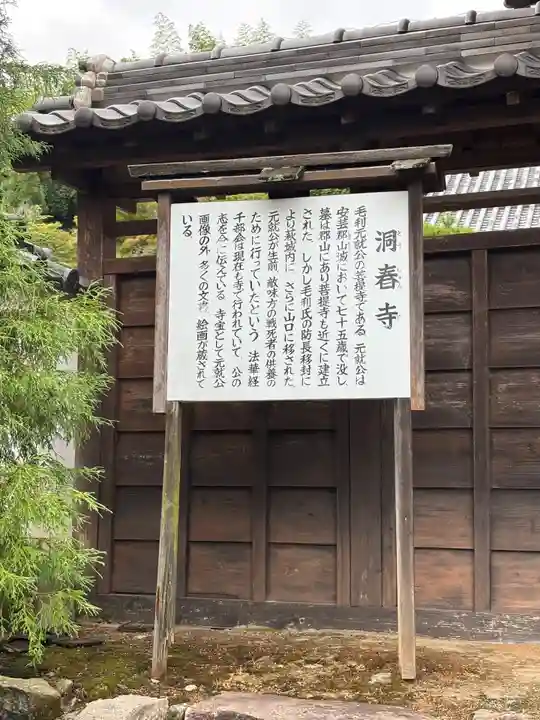 洞春寺
とうしゅんじ
毛利元就公の菩提寺である 元就公は
安芸郡山城において七十五歳で没し
墓は郡山にあり菩提寺も近くに建立
された しかし毛利氏の防長移封に
より萩城内に さらに山口に移された
元就公が生前 敵味方の戦死者の供養の
ために行っていたという 法華経
千部会は現在も寺で行われていて 公の
志を今に伝えている 寺宝として元就公
画像の外 多くの文書 絵画が蔵されて
いる